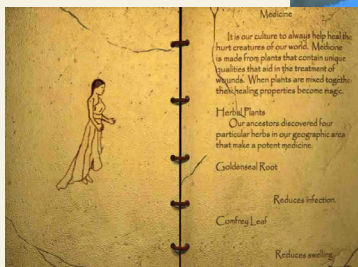 Medicine
It is our culture to always help heal the
hurt creatures of our world. Medicine
is made from plants that contain unique
qualities that aid in the treatment of
wounds. When plants are mixed together
their healing properties become magic.
Herbal Plants
Our ancestors discovered four
particular herbs in our geographic area
that make a potent medicine.
Goldenseal Root
Reduces infection.
Comfrey Leaf
Reduces swelling.